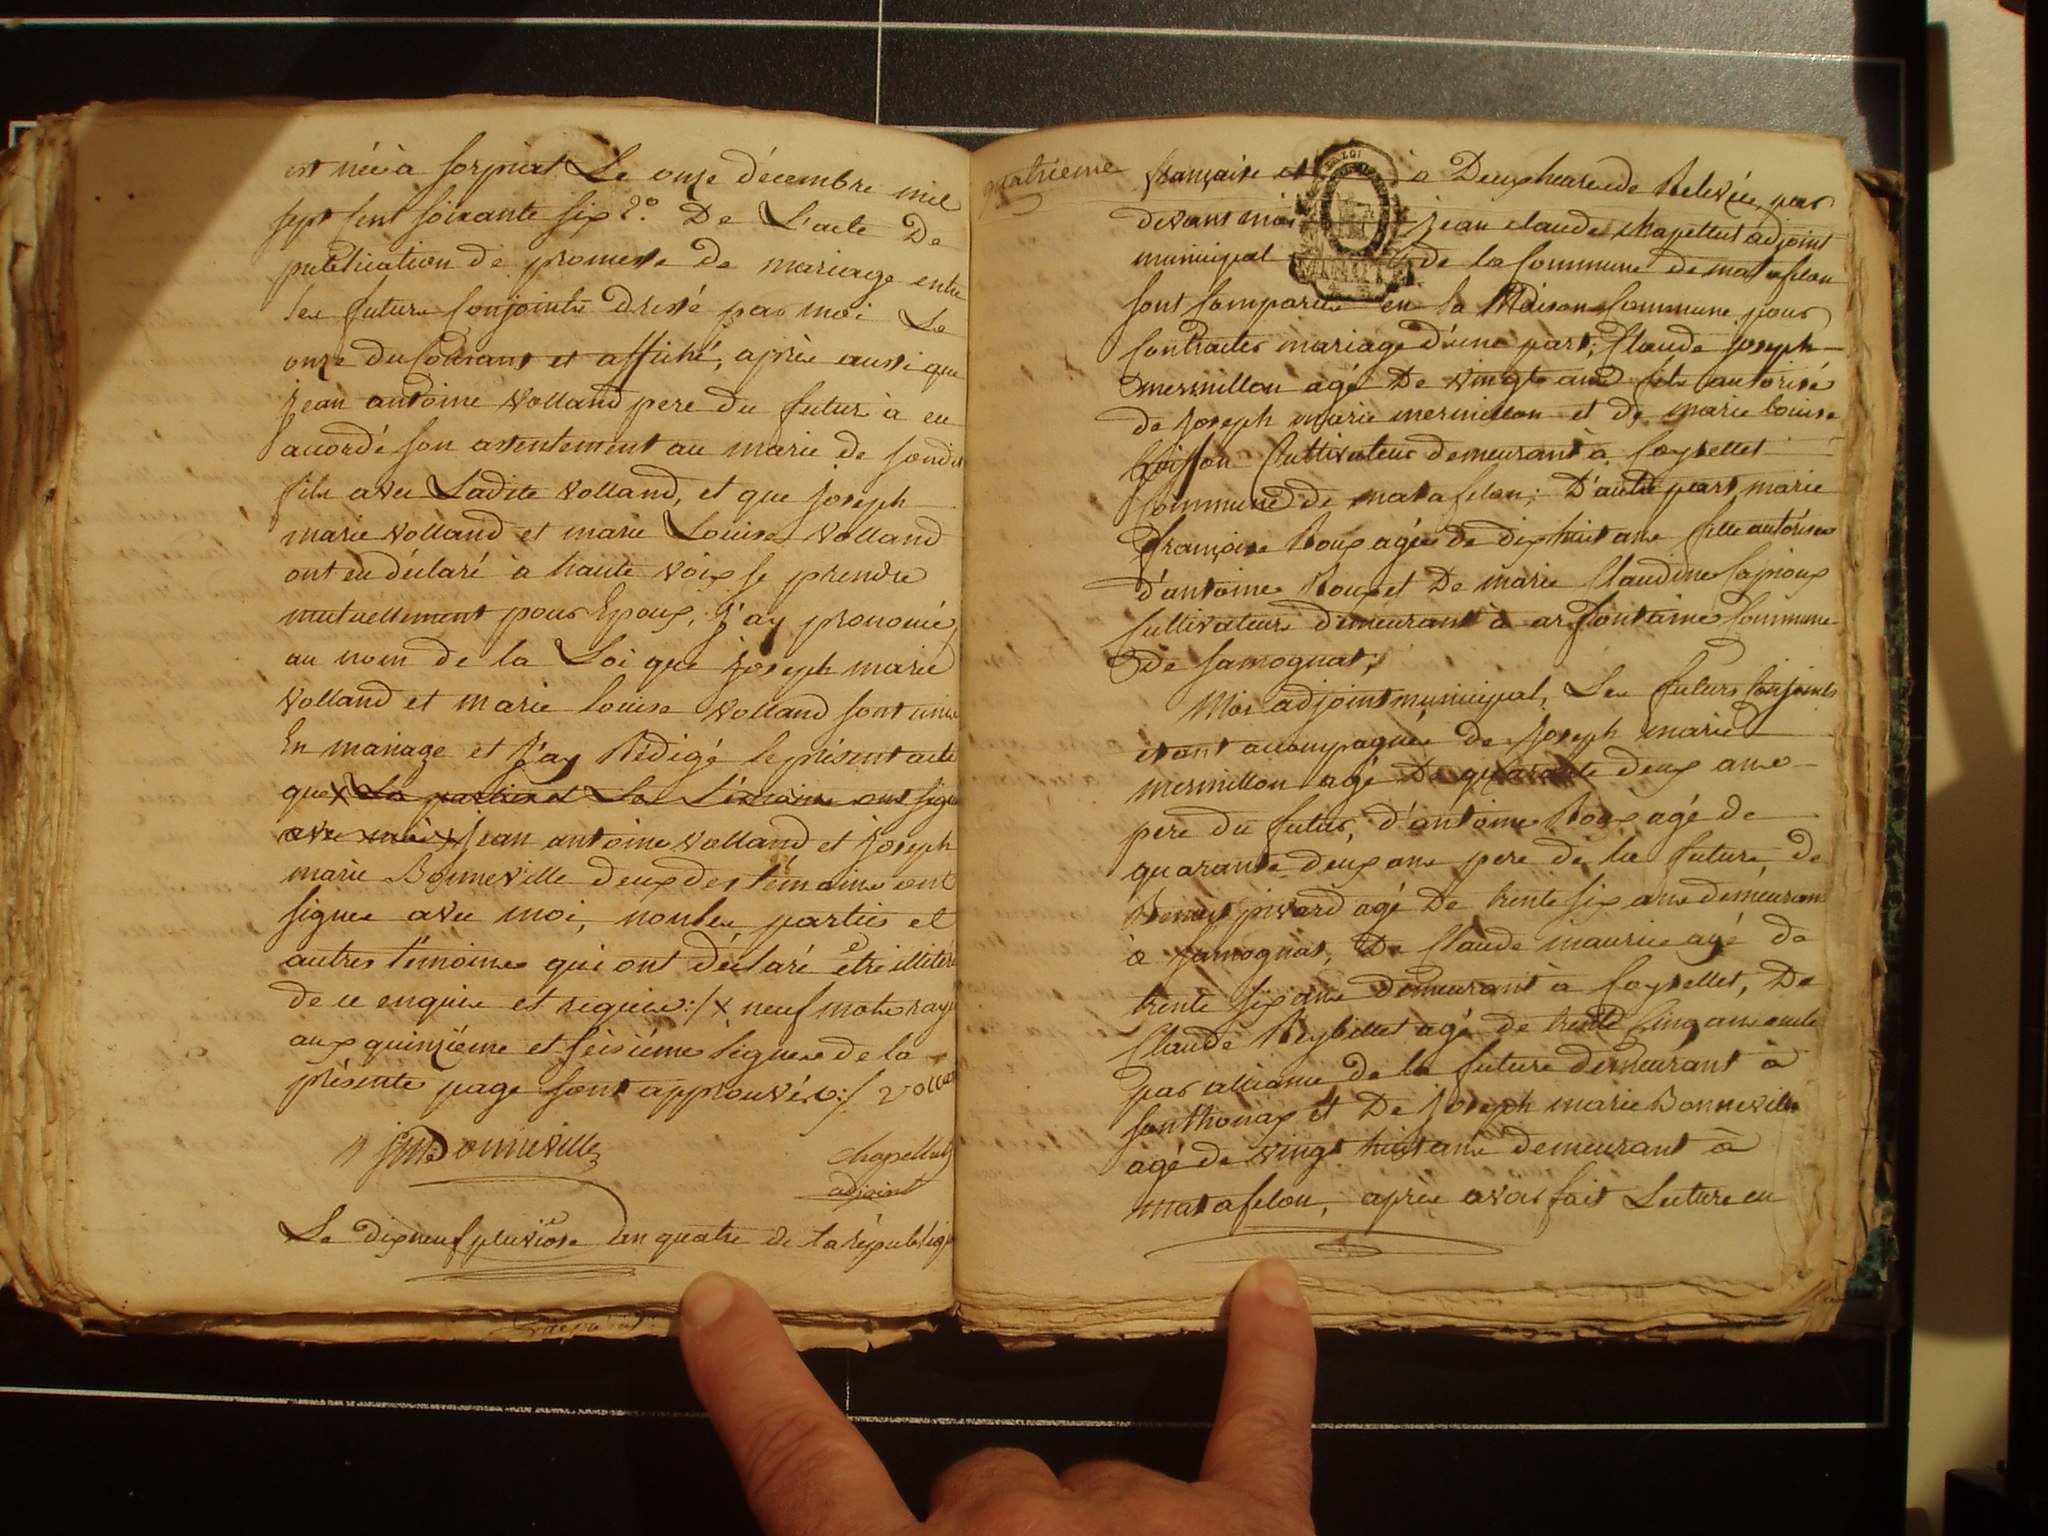 est née à sorpiat Le onze décembre mil
sept Cent soixante six 2.° De L'acte De
publication de promesse de mariage entre
les futurs Conjoints dressé par moi Le
onze du Courant et affiché, après aussi que
jean antoine volland pere du futur à eu
accordé son assentement au marie de sondit
fils avec Ladite volland, et que joseph
marie volland et marie Louise volland
ont eu déclaré a haute voix se prendre
mutuellement pour Epoux, j'ay prononcé
au nom de la Loi que joseph marie
volland et marie louise volland sont unis
En mariage et j'ay Rédigé le présent acte
que x La parties et Les témoins ont signé
avec moi x jean antoine volland et joseph
marie Bonneville deux des témoins ont
signés avec moi, non les parties et
autres témoins qui ont déclaré être illitérés
de ce enquis et requis :/ x neuf mots rayés
aux quinzième et seisième lignes de la
présente page sont approuvés :/ volland
jm Bonneville
chapellut
adjoint
Le dixneuf pluviose l'an quatre de la république
quatrieme
française et à Deux heures de Relevée, par
LOI
devant moi jean claude chapellut adjoint
municipal de la Commune de matafelon
sont Comparus en la Maison Commune pour
Contracter mariage d'une part, Claude joseph
mermillon agé De vingt ans fils autorisé
de joseph marie mermillon et de marie louise
Cultivateur demeurant à Coyssellet
Commune de matafelon; D'autre part, marie
françoise Roux agée de dix huit ans fille autorisée
d'antoine Roux et De marie Claudine
Cultivateurs demeurant à arfontaine Commune
de samognat;
Moi adjoint municipal, Les futurs Conjoints
etant accompagnés de joseph marie
mermillon agé De quarante deux ans
pere du futur, d'antoine Roux agé de
quarante deux ans pere de la future, de
Benoit pivard agé De trente six ans demeurant
à samognat, De Claude maurice agé de
trente six ans demeurant à Coyssellet, De
Claude Reybillet agé de trente Cinq ans oncle
par alliance de la future demeurant à
sonthonax et De joseph marie Bonneville
agé de vingt huit ans demeurant à
matafelon, après avoir fait Lecture en